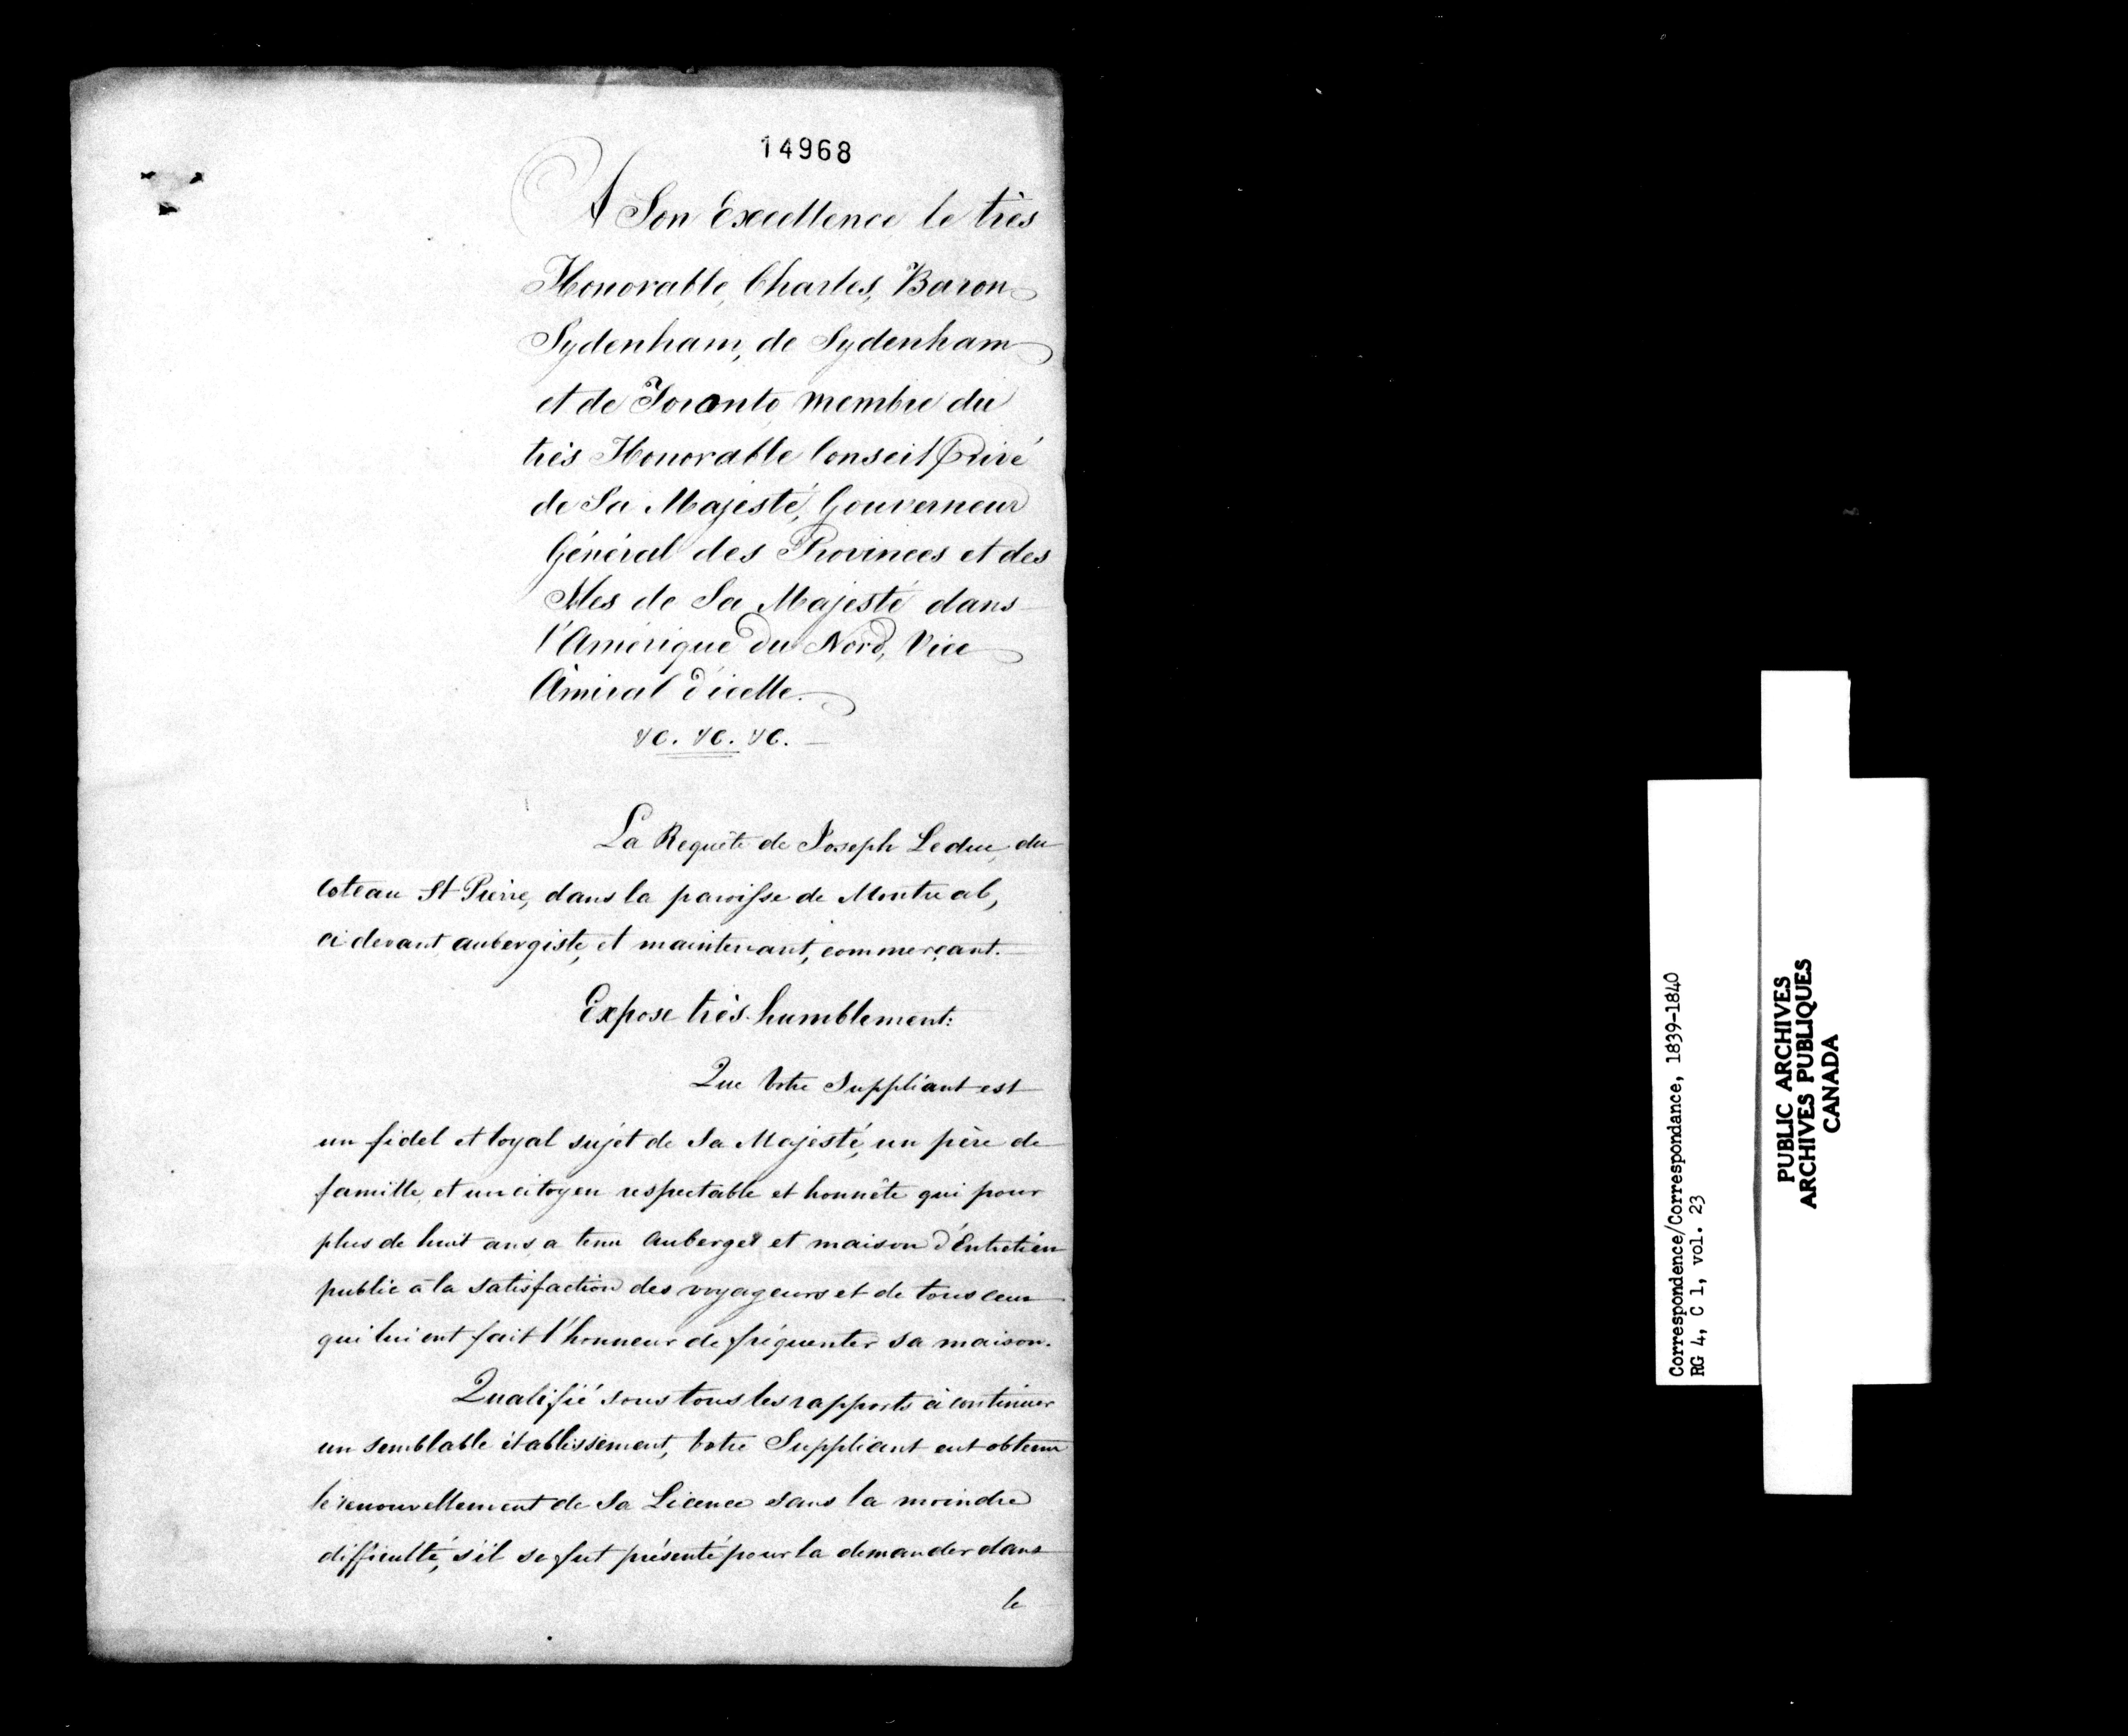 14968
A Son Excellence le très
Honorable, Charles, Baron
Sydenham, de Sydenham
et de Toronto, membre du
très Honorable Conseil Privé
de Sa Majesté, Gouverneur
Général des Provinces et des
Isles de Sa Majesté dans
l'Amérique du Nord, Vice
Amiral d'icelle.
&c. &c. &c.
La Requête de Joseph Leduc, du
Coteau St Pierre, dans la paroisse de Montreal,
ci devant aubergiste, et maintenant, commerçant.
Expose très humblement:
Que Votre Suppliant est
un fidel et loyal sujet de Sa Majesté, un père de
famille, et un citoyen respectable et honnête qui pour
plus de huit ans, a tenu auberge et maison d'Entretien
public à la satisfaction des voyageurs et de tous ceux
qui lui ont fait l'honneur de fréquenter sa maison.
Qualifié sous tous les rapports à continuer
un semblable établissement, Votre Suppliant eut obtenu
le renouvellement de Sa Licence sans la moindre
difficulté, s'il se fut présenté pour la demander dans
le
Correspondence/Correspondance, 1839-1840
RG 4, C 1, vol. 23
PUBLIC ARCHIVES
ARCHIVES PUBLIQUES
CANADA